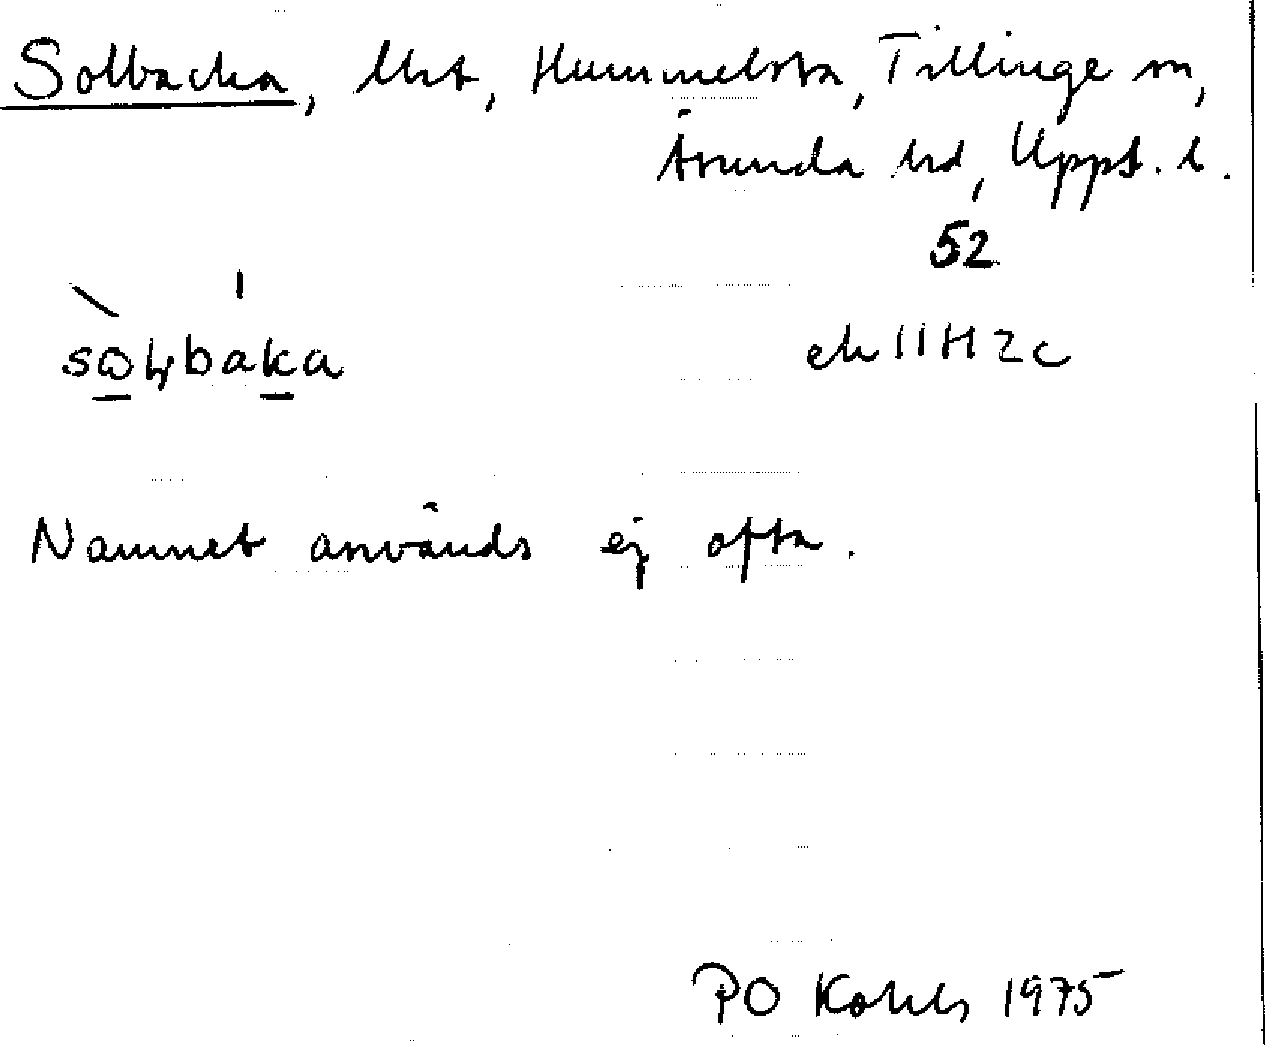 Solbacka, lht, Hummelsta, Tillinge sn,
Åsunda hd, Uppl. l.
52
sωl̥baka ek 11H2c
Namnet används ej ofta.
PO 1975